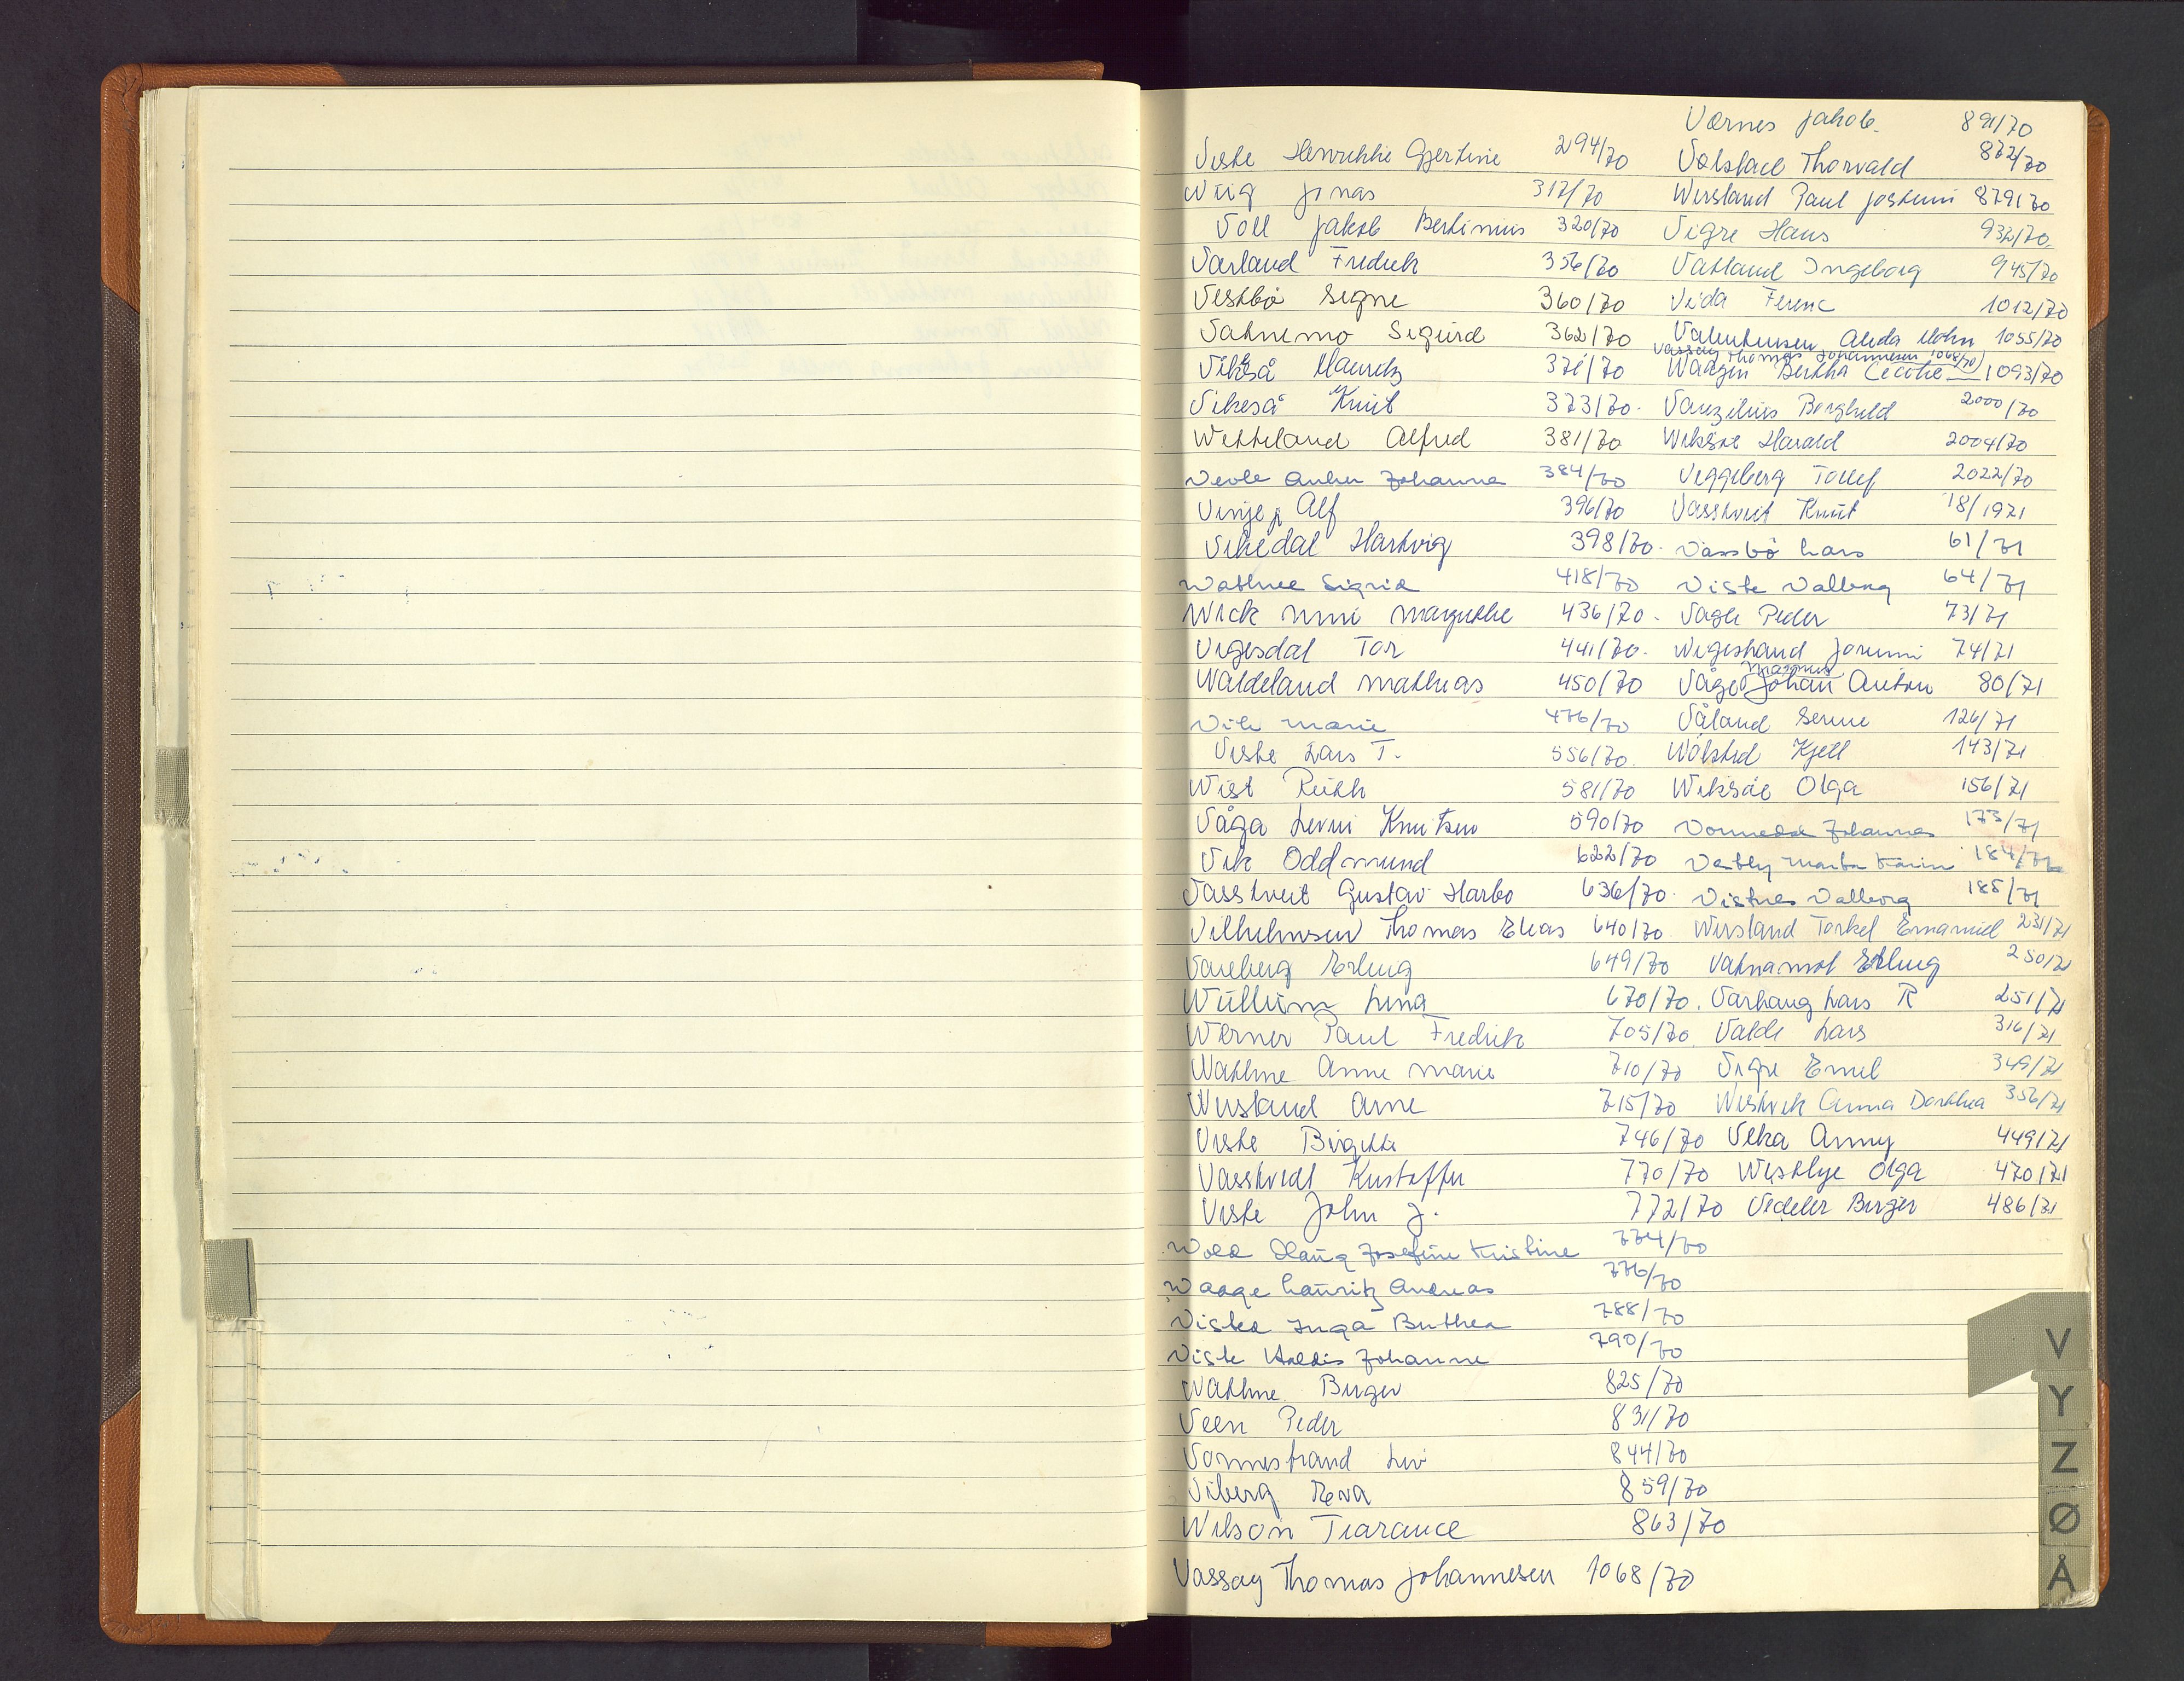 Værnes Jakob 891/70
Viste Henrikke Gjertine 294/70 Vølstad Thorvald 872/70
Wiig Jonas 317/70 Wersland Paul Jostein 879/70
Voll Jakob Bertinius 320/70 Vigre Hans 932/70
Varland Fredrik 356/70 Vatland Ingeborg 945/70
Vestbø Signe 360/70 Vida Ferenc 1012/70
Vatnemo Sigurd 362/70 Valentinsen Alida Malm 1055/70
Vassøy Thomas Johannessen 1068/70
Vikså Mauritz 371/70 Waagen Bertha Cecilie 1093/70
Vikeså Knut 373/70 Berghild 2000/70
Wetteland Alfred 381/70 Wiksøe Harald 2004/70
Johanna 384/70 Veggeberg Tollef 2022/70
Vinje, Alf 396/70 Vasstveit Knut 18/1971
Vikedal Hartvig 398/70 Vassbø Lars 61/71
Wathne Sigrid 418/70 Viste Valborg 64/71
Wick Unni Margrethe 436/70 Vagle Peder 73/71
Vigesdal Tor 441/70 Wigestrand Jorunn 74/71
Magnus
Waldeland Mathias 450/70 Våge Johan Anton 80/71
Vik Marie 476/70 Våland Serine 126/71
Viste Lars T. 556/70 Wølstad Kjell 143/71
Wist Ruth 581/70 Wiksåe Olga 156/71
Våga Levni Knutsen 590/70 Johannes 173/71
Vik Oddmund 622/70 Vestly Marta Karin 184/71
Vasstveit Gustav Harbo 636/70 Vistnes Valborg 185/71
Vilhelmsen Thomas Elias 640/70 Wersland Torkel Emanuel 231/71
Vareberg Erling 649/70 Vatnamot Erling 250/71
Wullum Lina 670/70 Varhaug Lars R 251/71
Werner Paul Fredrik 705/70 Valde Lars 316/71
Wathne Anne Marie 710/70 Vigre Emil 349/71
Wersland Arne 715/70 Westvik Anna Dorthea 356/71
Viste Birgitte 746/70 Velka Anny 449/71
Vasstvedt Kristoffer 770/70 Westlye Olga 470/71
Viste John J. 772/70 Vedeler Birger 486/71
Wold Haug Josefine Kristine 774/70
Waage Lauritz Andreas 776/70
Viste Inga Buthea 788/70
Viste Haldis Johanne 790/70
Wathne Birger 825/70
Veen Peder 831/70
Vormestrand Liv 844/70
Viberg Reva 859/70
Wilson Tiarance 863/70
Vassøy Thomas Johannesen 1068/70
V
Y
Z
Ø
Å